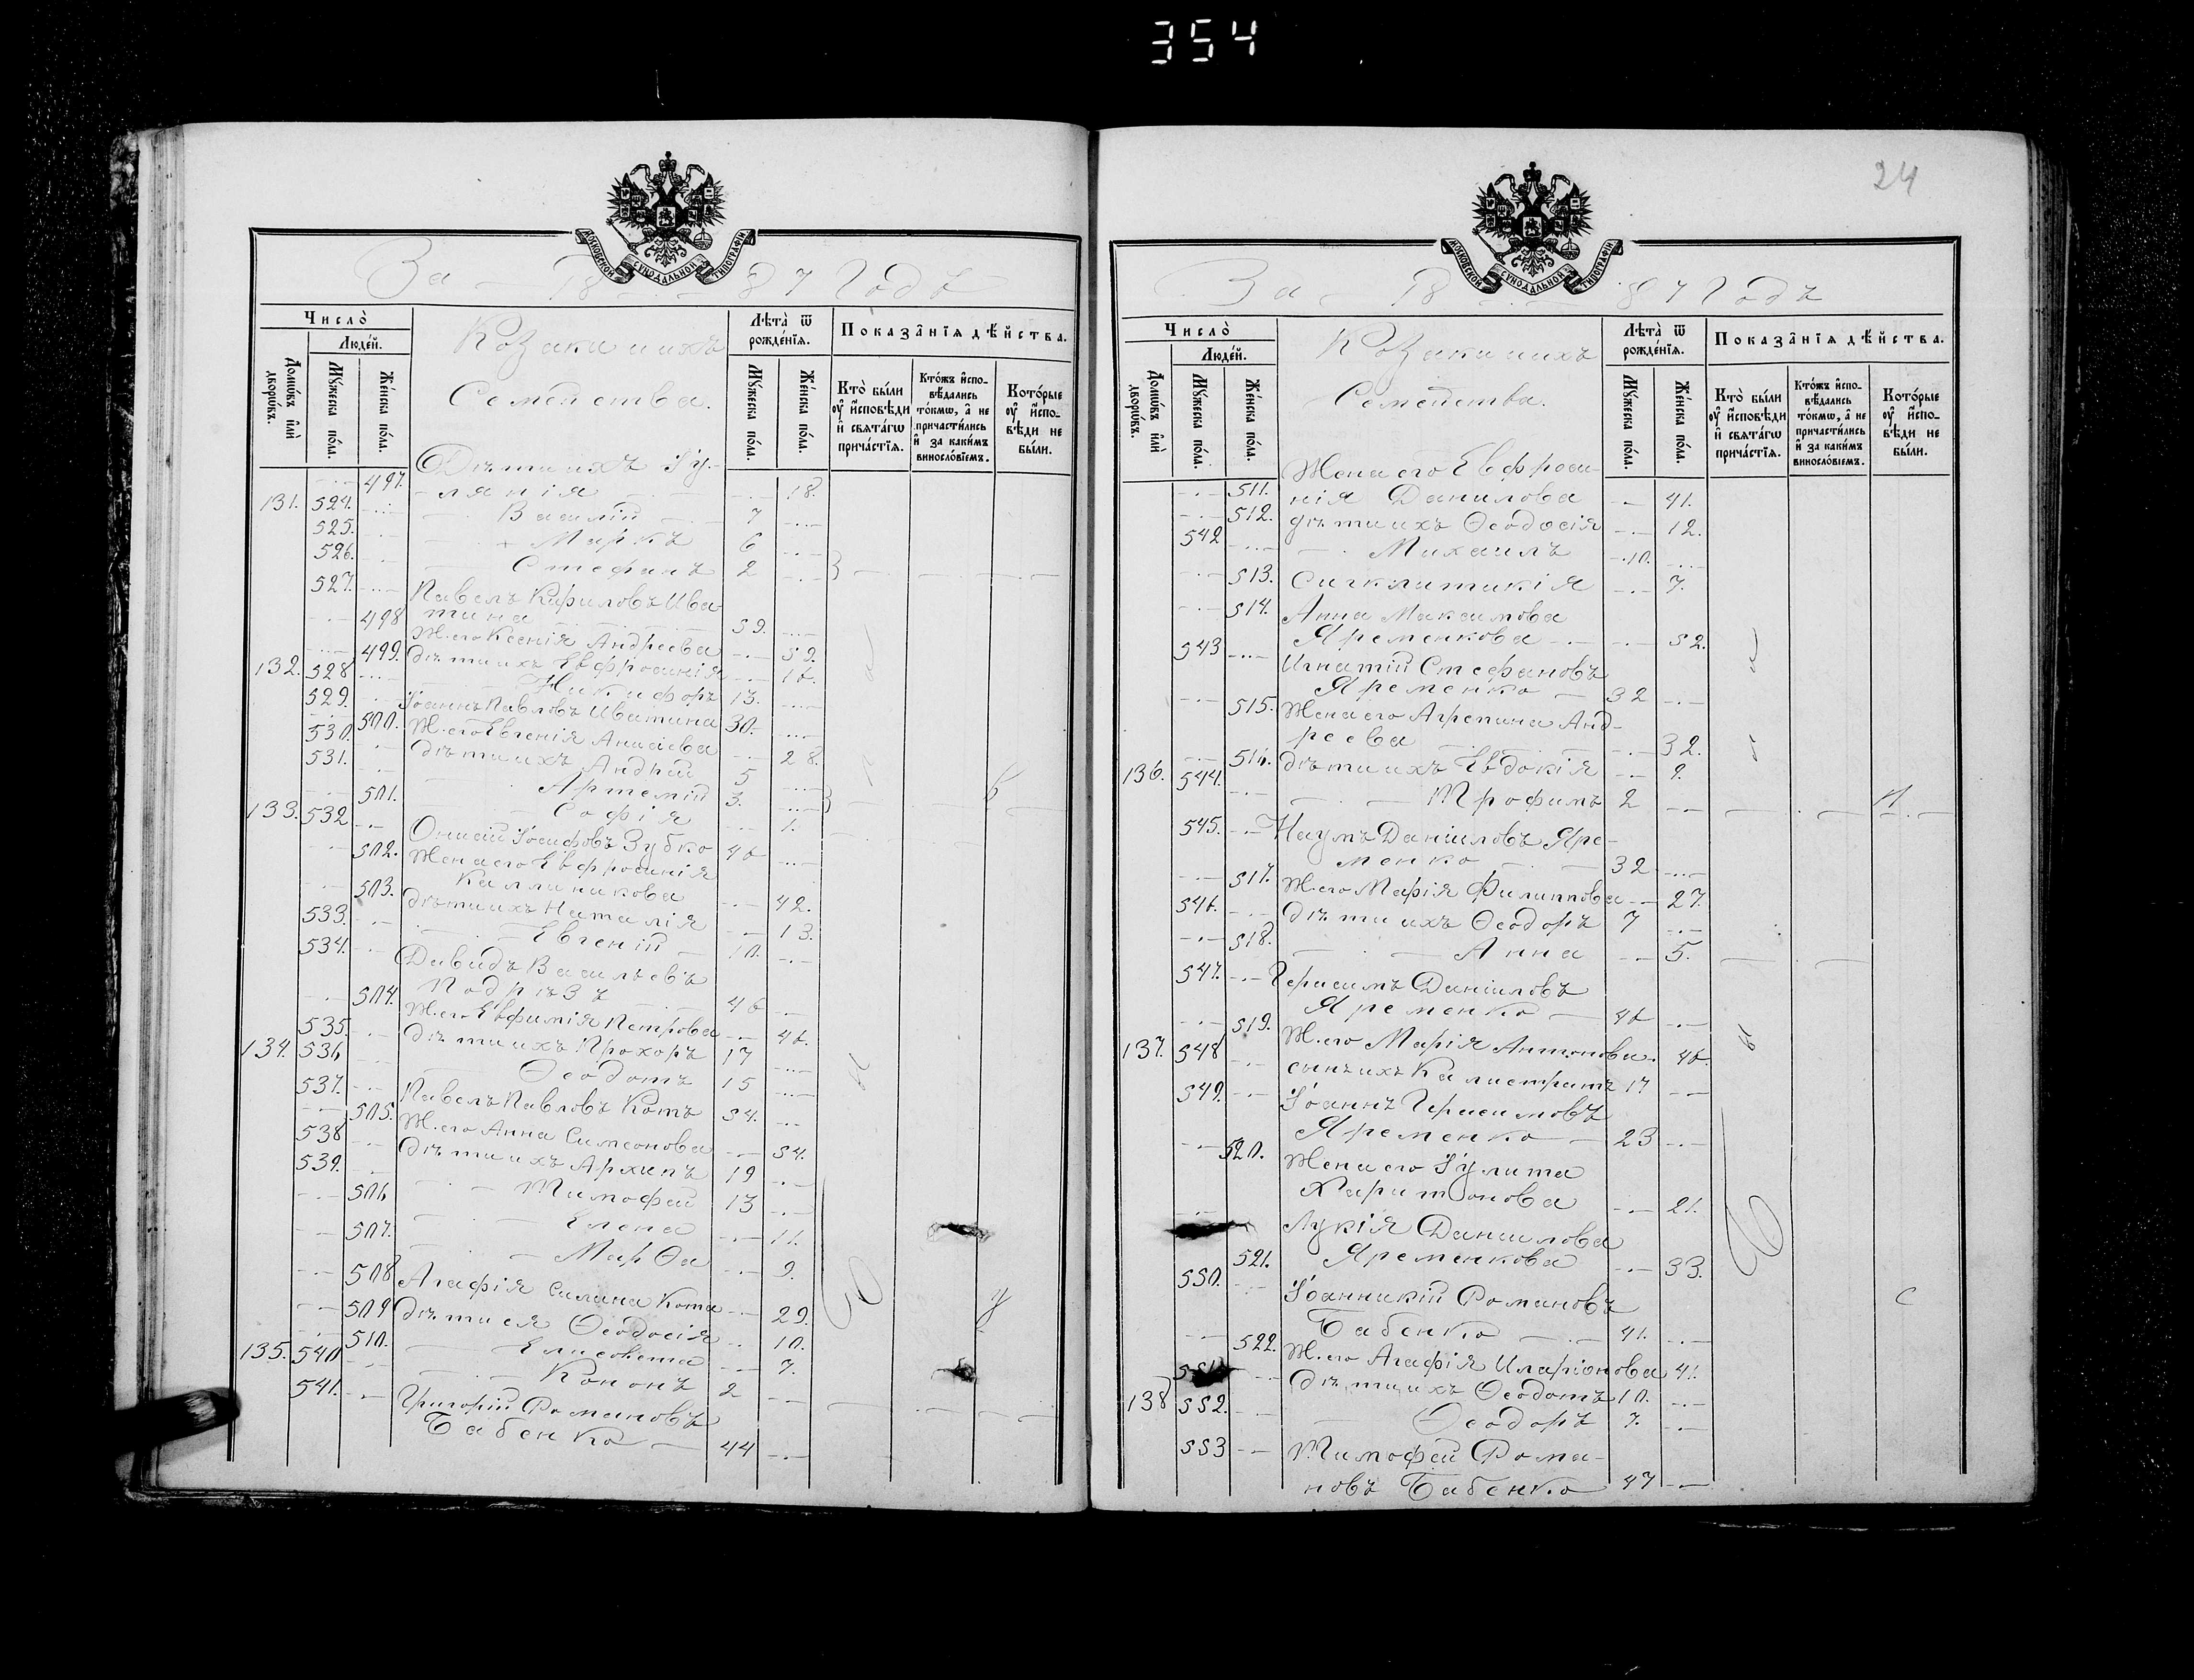 354
24
МОСКОВСКОЙ СѴНОДАЛЬНОЙ ТИПОГРАФІИ
За — 18 — 87 Годъ
Число̀
Люде́й.
Домѡ́въ и҆лѝ дворѡ́въ.
Мꙋ́жеска по́ла.
Же́нска по́ла.
Козаки и ихъ
Семейства.
Лѣта̀ ѿ рожде́нїѧ.
Мꙋ́жеска по́ла.
Же́нска по́ла.
Показа̑нїѧ дѣ́йства.
Кто̀ бы́ли ᲂу҆ и҆сповѣ́ди и҆ свѧта́гѡ прича́стїѧ.
Кто́жъ и҆спо-вѣ́дались то́кмѡ, а҆ не причасти́лись и҆ за каки́мъ винослѡ́вїемъ.
Кото́рые ᲂу҆ и҆спо-вѣ́ди не бы́ли.
Дѣти ихъ Іу-
497. лянія 18.
131. 524. Василій 7
525. Маркъ 6
526. Стефанъ 2
527. Павелъ Кириловъ Ива-
тина 59.
498 Ж. его Ксенія Андреева 59.
499. Дѣти ихъ Евфросинія 16.
132. 528 Никифоръ 13.
529. Іоаннъ Павловъ Иватина 30.
500. Ж. его Евгенія Анисіева 28.
530. Дѣти ихъ Андрей 5
531. Артемій 3.
501. Софія 1.
133. 532 Онисій Іосифовъ Зубко 46
502. Жена его Евфросинія
Каллиникова 42.
503. Дѣти ихъ Наталія 13.
533. Евгеній 10.
534. Давидъ Васильевъ
Подрѣзъ 46
504. Ж. его Евфимія Петрова 46.
535. Дѣти ихъ Прохоръ 17
134. 536 Ѳеодотъ 15
537. Павелъ Павловъ Котъ 54.
505. Ж. его Анна Симеонова 54.
538 Дѣти ихъ Архипъ 19
539. Тимофей 13
506 Елена 11.
507. Марѳа 9.
508 Агафія Силина Кота 29.
509 Дѣти ея Ѳеодосія 10.
510. Елисавета 7.
135. 540 Кононъ 2
541. Григорій Романовъ
Бабенко 44
МОСКОВСКОЙ СѴНОДАЛЬНОЙ ТИПОГРАФІИ
За — 18 — 87 Годъ
Число̀
Люде́й.
Домѡ́въ и҆лѝ дворѡ́въ.
Мꙋ́жеска по́ла.
Же́нска по́ла.
Козаки и ихъ
Семейства.
Лѣта̀ ѿ рожде́нїѧ.
Мꙋ́жеска по́ла.
Же́нска по́ла.
Показа̑нїѧ дѣ́йства.
Кто̀ бы́ли ᲂу҆ и҆сповѣ́ди и҆ свѧта́гѡ прича́стїѧ.
Кто́жъ и҆спо-вѣ́дались то́кмѡ, а҆ не причасти́лись и҆ за каки́мъ винослѡ́вїемъ.
Кото́рые ᲂу҆ и҆спо-вѣ́ди не бы́ли.
Жена его Евфроси-
511. нія Данилова 41.
512. Дѣти ихъ Ѳеодосія 12.
542 Михаилъ 10.
513. Сигклитикія 7.
514. Анна Максимова
Яременкова 52.
543 Игнатій Стефановъ
Яременко 32
515. Жена его Агрепина Анд-
реева 32.
516. Дѣти ихъ Евдокія 9.
136. 544. Трофимъ 2
545. Наумъ Даніиловъ Яре-
менко 32
517. Ж. его Марія Филиппова 27.
546. Дѣти ихъ Ѳеодоръ 7
518. Анна 5.
547. Герасимъ Даніиловъ
Яременко 46
519. Ж. его Марія Антонова 46.
137. 548 сынъ ихъ Калистратъ 17
549. Іоаннъ Герасимовъ
Яременко 23
520. Жена его Іулита
Харитонова 21.
Лукія Данилова
521. Яременкова 33.
550. Іоанникій Романовъ
Бабенко 41.
522. Ж. его Агафія Иларіонова 41.
551 Дѣти ихъ Ѳеодотъ 10.
138 552. Ѳеодоръ 7.
553 Тимофей Рома-
новъ Бабенко 47